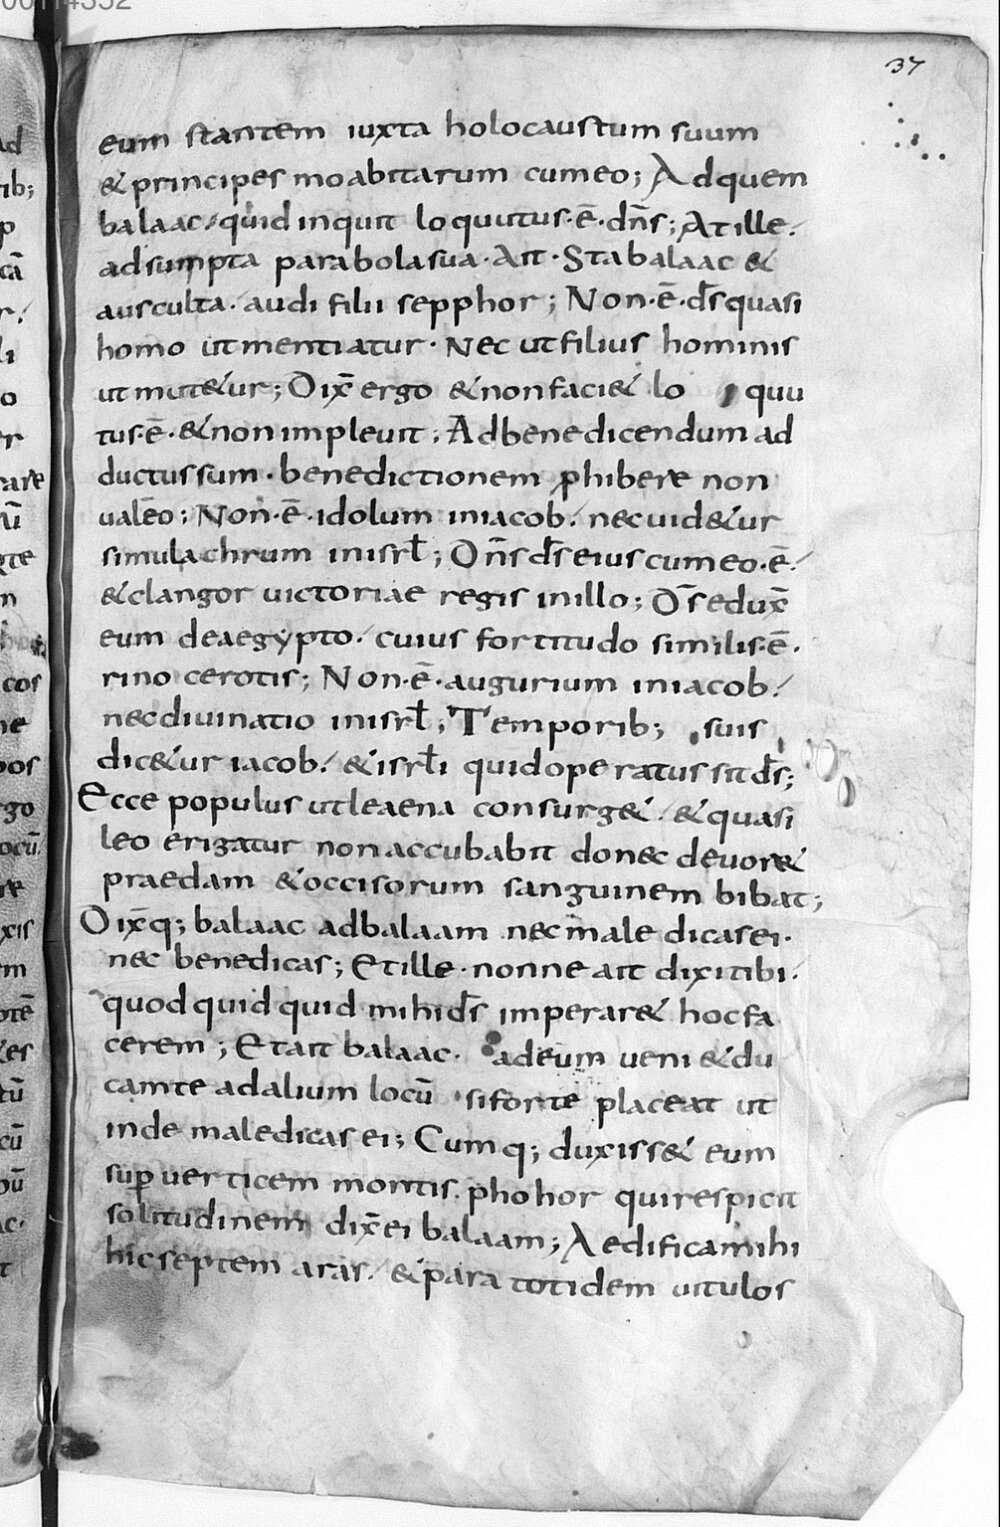 37
eum stantem iuxta holocaustum suum
& principes moabitarum cumeo; Adquem
balaac / quid inquit loquutus·ē·dn̄s; Atille /
adsumpta parabolasua· Ait· Stabalaac &
ausculta· audi filii sepphor; Non·ē·ds̄quasi
homo utmentiatur· Nec utfilius hominis
ut mut&ur; Dix̄ ergo &nonfaci&; lo quu
tus·ē· &nonimpleuit; Adbenedicendum ad
ductussum· benedictionem ꝓhibere non
ualeo; Non·ē·idolum iniacob / necuid&ur
simulachrum inisrl̄; Dn̄s ds̄eius cumeo·ē /
&clangor uictoriae regis inillo; Ds̄eduxē
eum deaegypto / cuius fortitudo similis·ē·
rinocerotis; Non·ē·augurium iniacob /
necdiuinatio inisrl̄; Temporib; suis
dic&ur iacob / &isrl̄i quidoperatus sit ds̄;
Ecce populus utleaena consurg& / &quasi
leo erigatur nonaccubabit donec deuor&
praedam &occisorum sanguinem bibat;
Dix̄q; balaac adbalaam nec male dicasei·
nec benedicas; Etille· nonne ait dixitibi /
quod quid quid mihids̄ imperar& hocfa
cerem; Etait balaac· adeum ueni &du
camte adalium locū siforte placeat ut
inde maledicas ei; Cumq; duxiss& eum
suꝑ uerticem montis phohor quirespicit
solitudinem dix̄ei balaam; Aedificamihi
hic septem aras / &para totidem uitulos